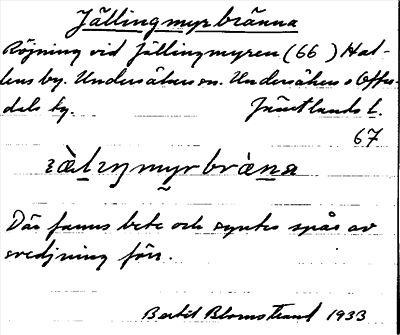 Jällingmyrbränna
Röjning vid Jällingmyren (66) Hal-
lens by. Undersåkers sn. Undersåkers o Offer-
dals tg. Jämtlands l.
67
Där fanns bete och syntes spår av
svedjning förr.
Bertil Blomstrand 1933